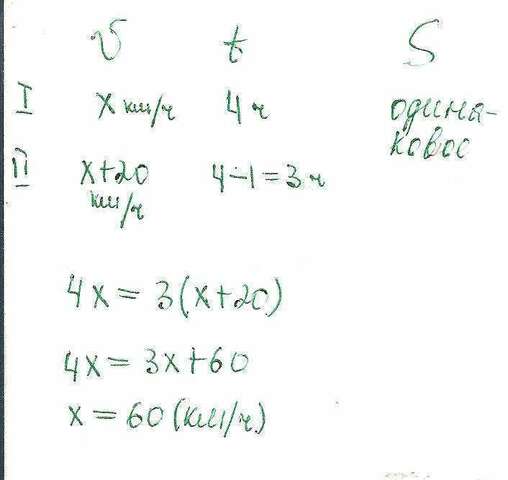 v t S
I x км/ч 4 ч одина-
ковое
II x+20 4-1=3 ч
км/ч
4x = 3(x+20)
4x = 3x+60
x = 60 (км/ч)